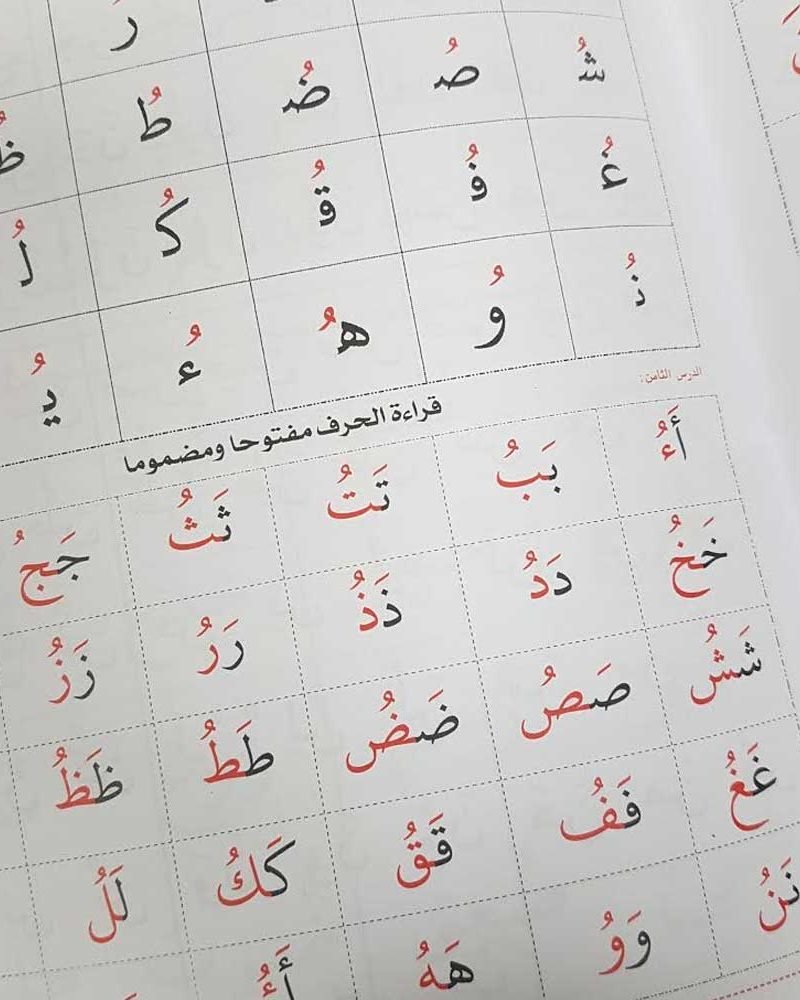 رُ
شُ صُ ضُ طُ ظُ
غُ فُ قُ كُ لُ
نُ وُ هُ ءُ يُ
الدرس الثامن:
قراءة الحرف مفتوحا ومضموما
أَءُ بَبُ تَتُ ثَثُ جَجُ
خَخُ دَدُ ذَذُ رَرُ زَزُ
شَشُ صَصُ ضَضُ طَطُ ظَظُ
غَغُ فَفُ قَقُ كَكُ لَلُ
نَنُ وَوُ هَهُ أَءُ